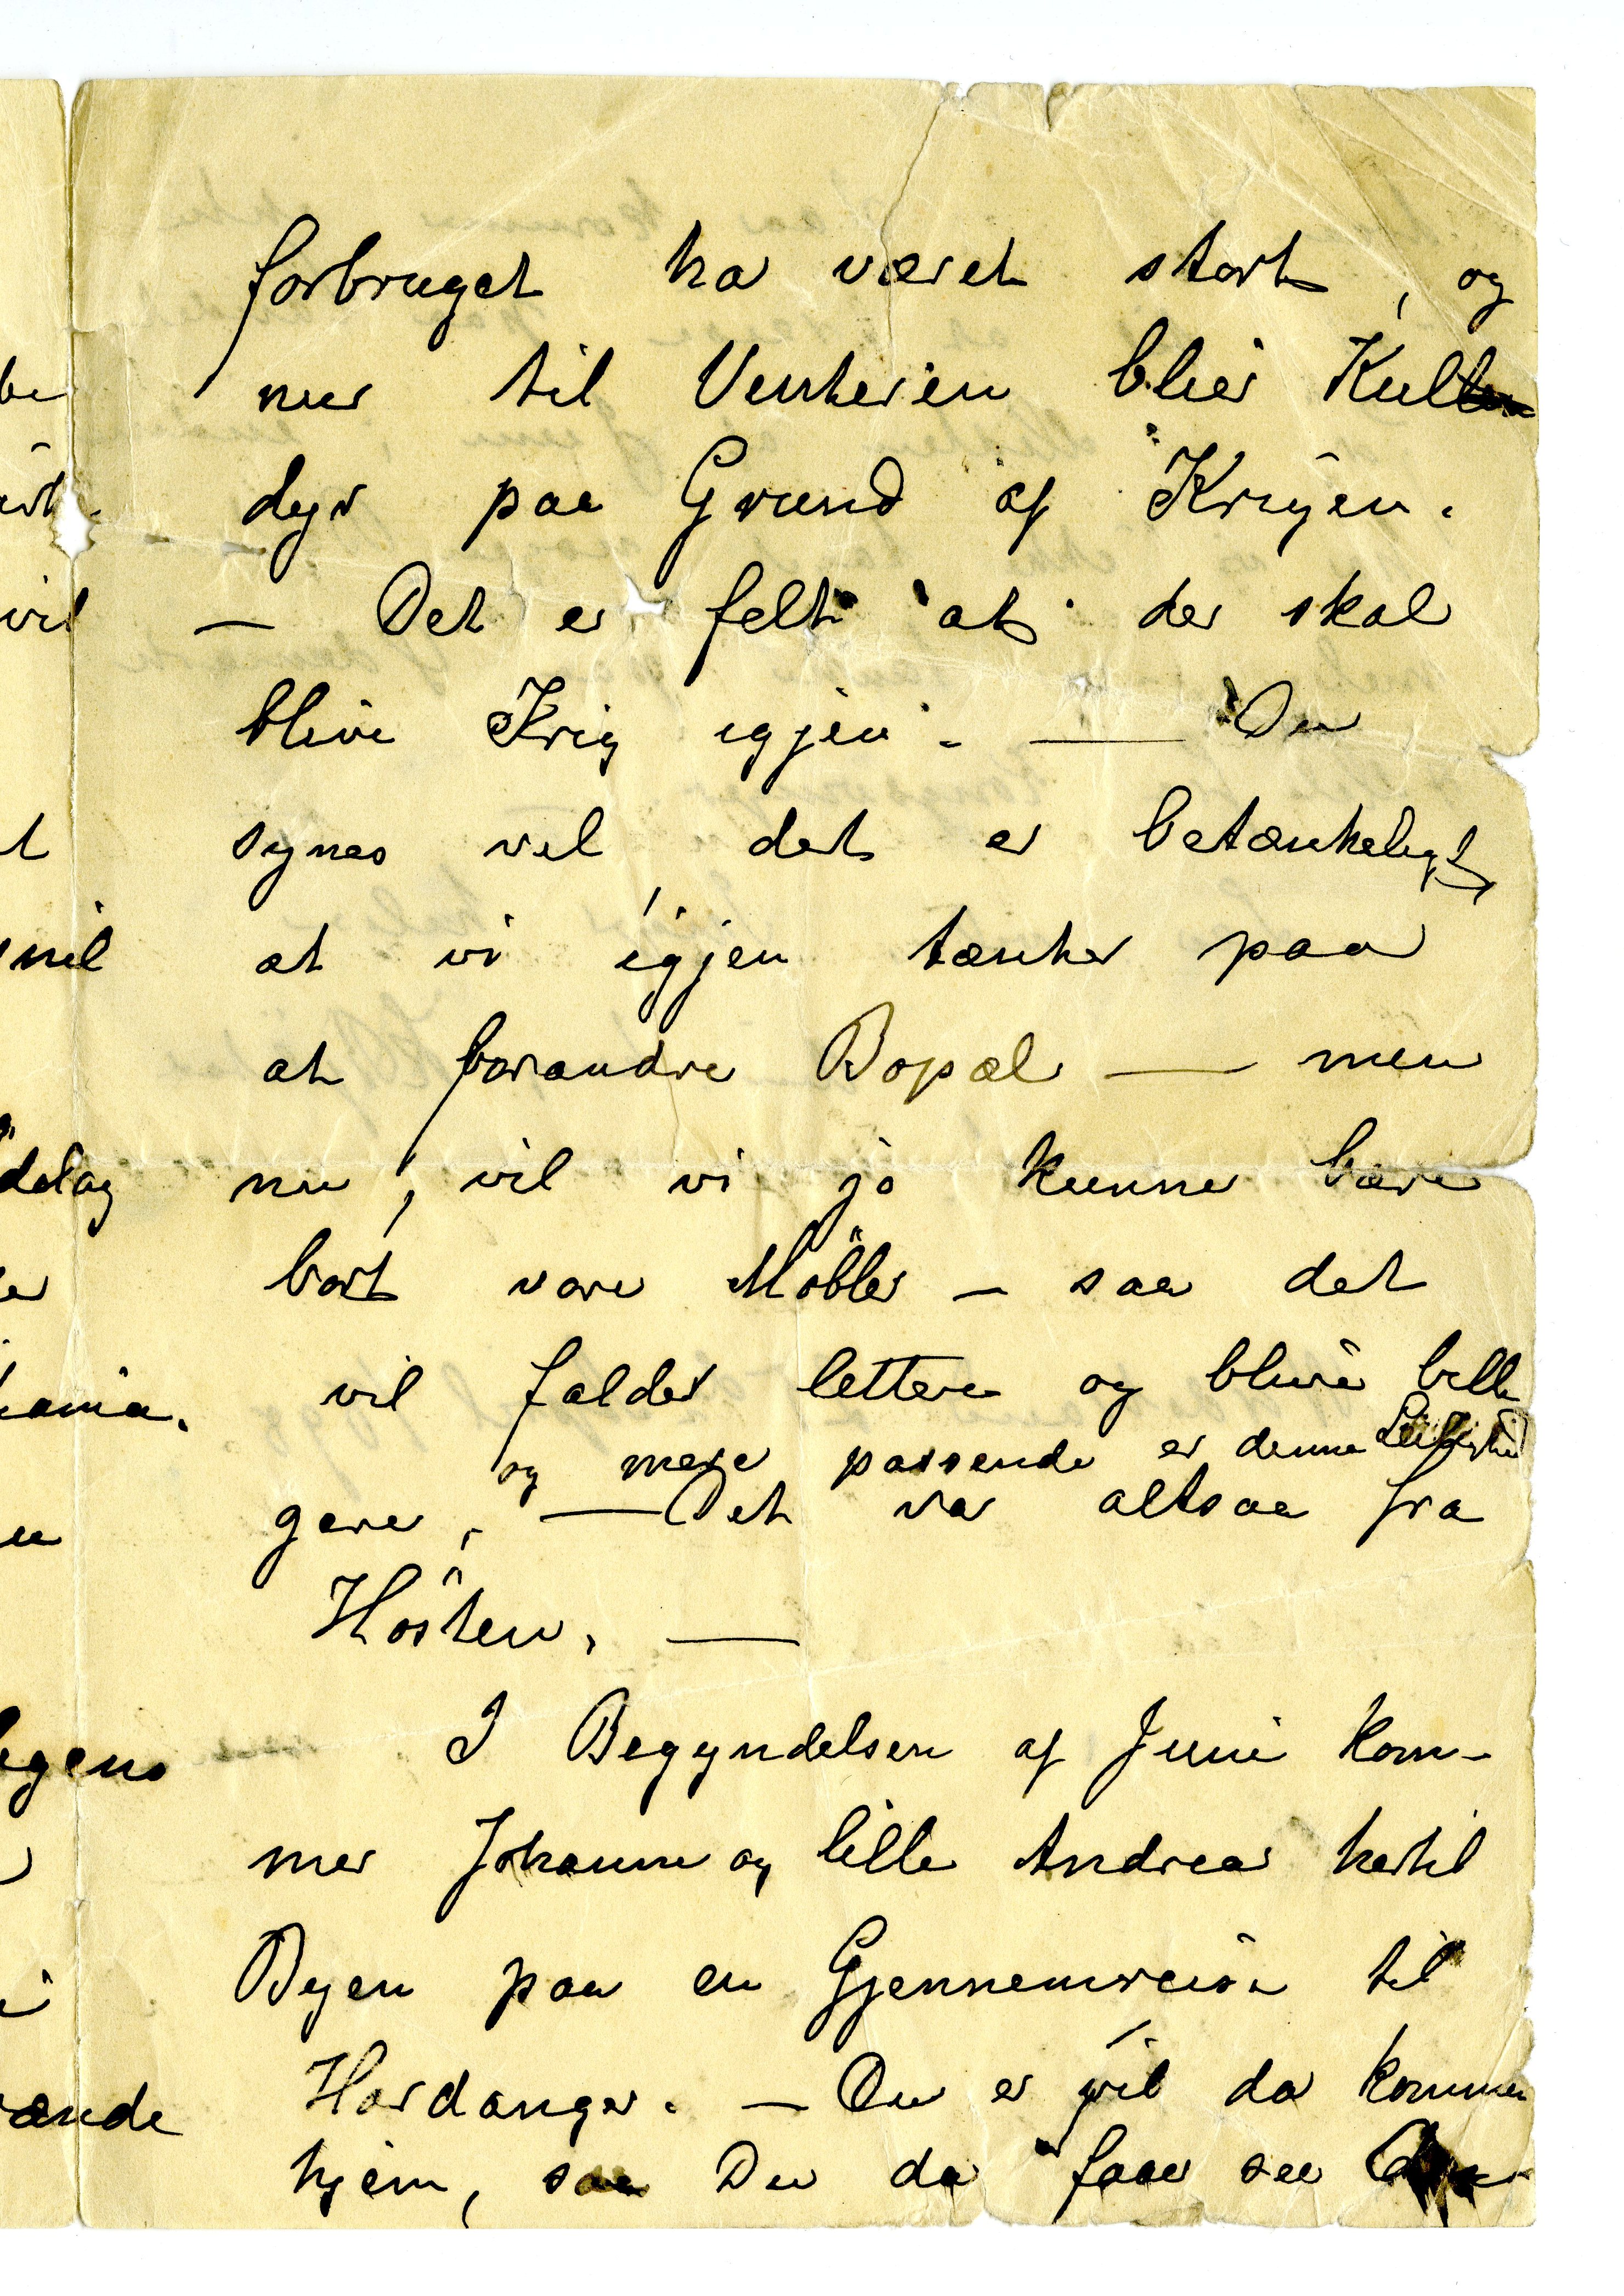 forbruget ha været stort, og
nu til Vinteren blir Kullen
dyr paa Grund af Krigen.
— Det er fælt at der skal
blive Krig igjen. — Du
synes vel det er betænkeligt
at vi igjen tænker paa
at forandre Bopæl — men
nu, vil vi jo kunne bære
bort vore Möbler — saa det
vil falder lettere og blive billi
og mere passende er denne
gere, — Det var altsaa fra
Hösten. —
I Begyndelsen af Juni kom-
mer Johanne og lille Andrea hertil
Byen paa en Gjennemreise til
Hardanger. — Du er vil da komme
hjem, saa Du da faar see
vil
delag
ania.
egens
ænde